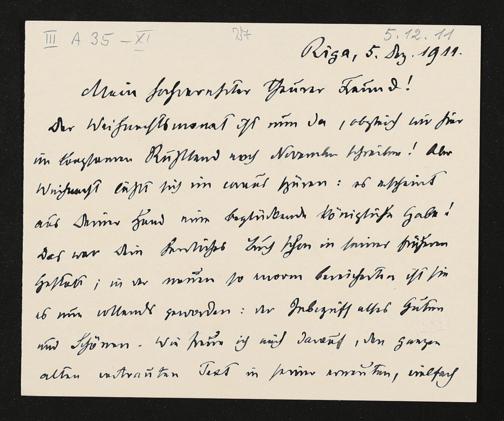 III A 35 – XI
5.12.11
Riga, 5. Dez. 1911.
Mein hochverehrter theurer Freund!
Der Weihnachtsmonat ist nun da, obgleich wir hier
im langsamen Rußland noch November schreiben! Aber
Weihnacht läßt sich im voraus spüren: es erscheint
aus Deiner Hand eine beglückende königliche Gabe!
Das war Dein herrliches Buch schon in seiner früheren
Gestalt; in der neuen so enorm bereicherten ist sie
es nun vollends geworden: der Inbegriff alles Guten
und Schönen. Wie freue ich mich darauf, den ganzen
alten vertrauten Text in seiner erneuten, vielfach